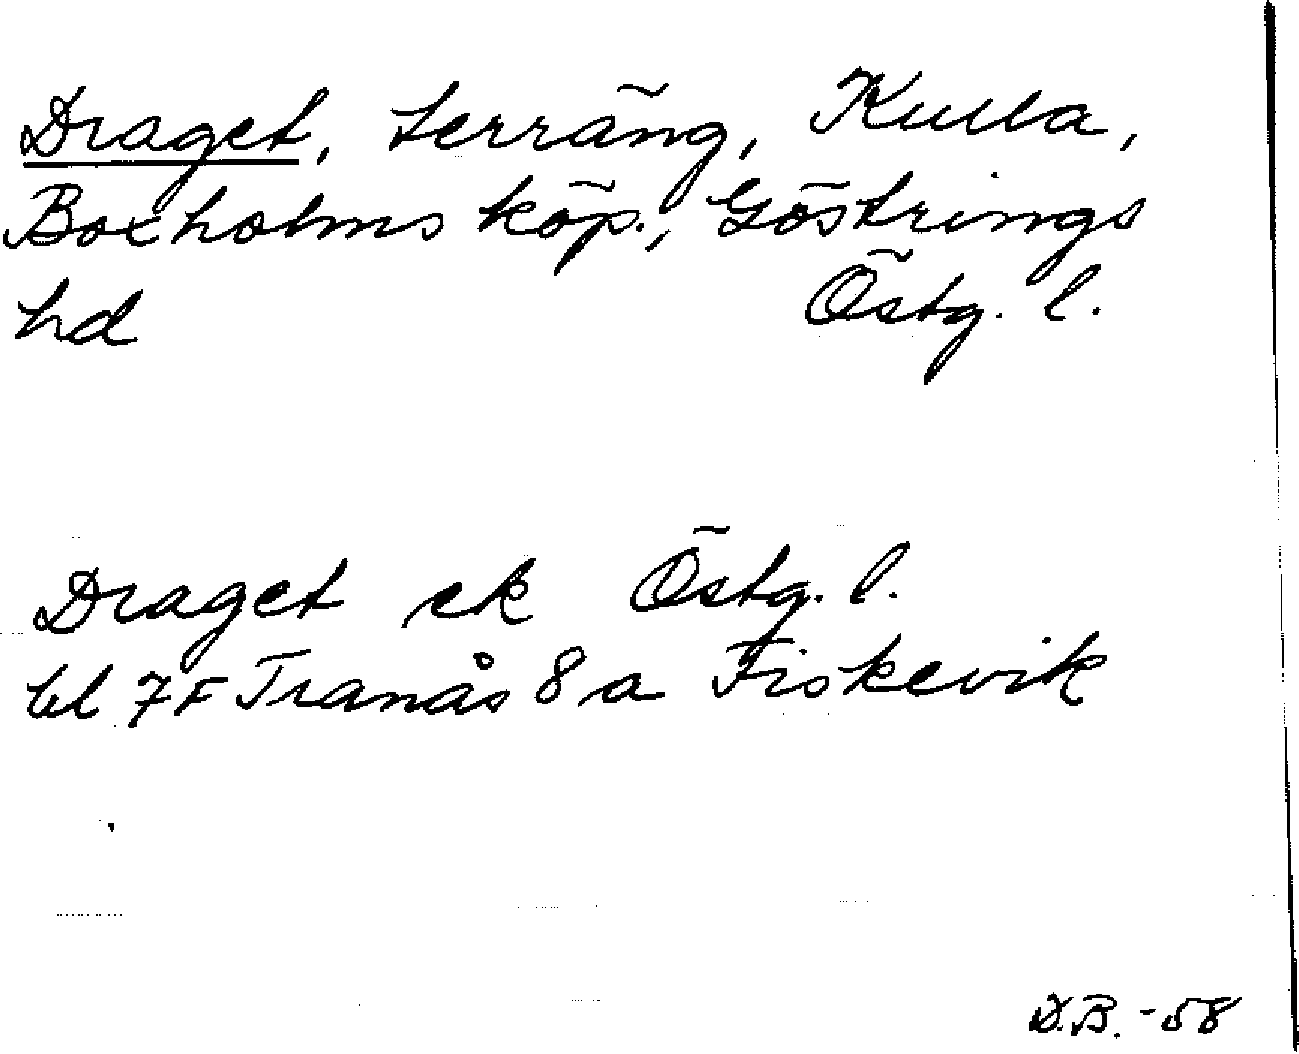 Draget, terräng, Kulla,
Boxholms köp., Göstrings
hd Östg. l.
Draget ek Östg. l.
bl 7F Tranås 8a Fiskevik
D.B. -58